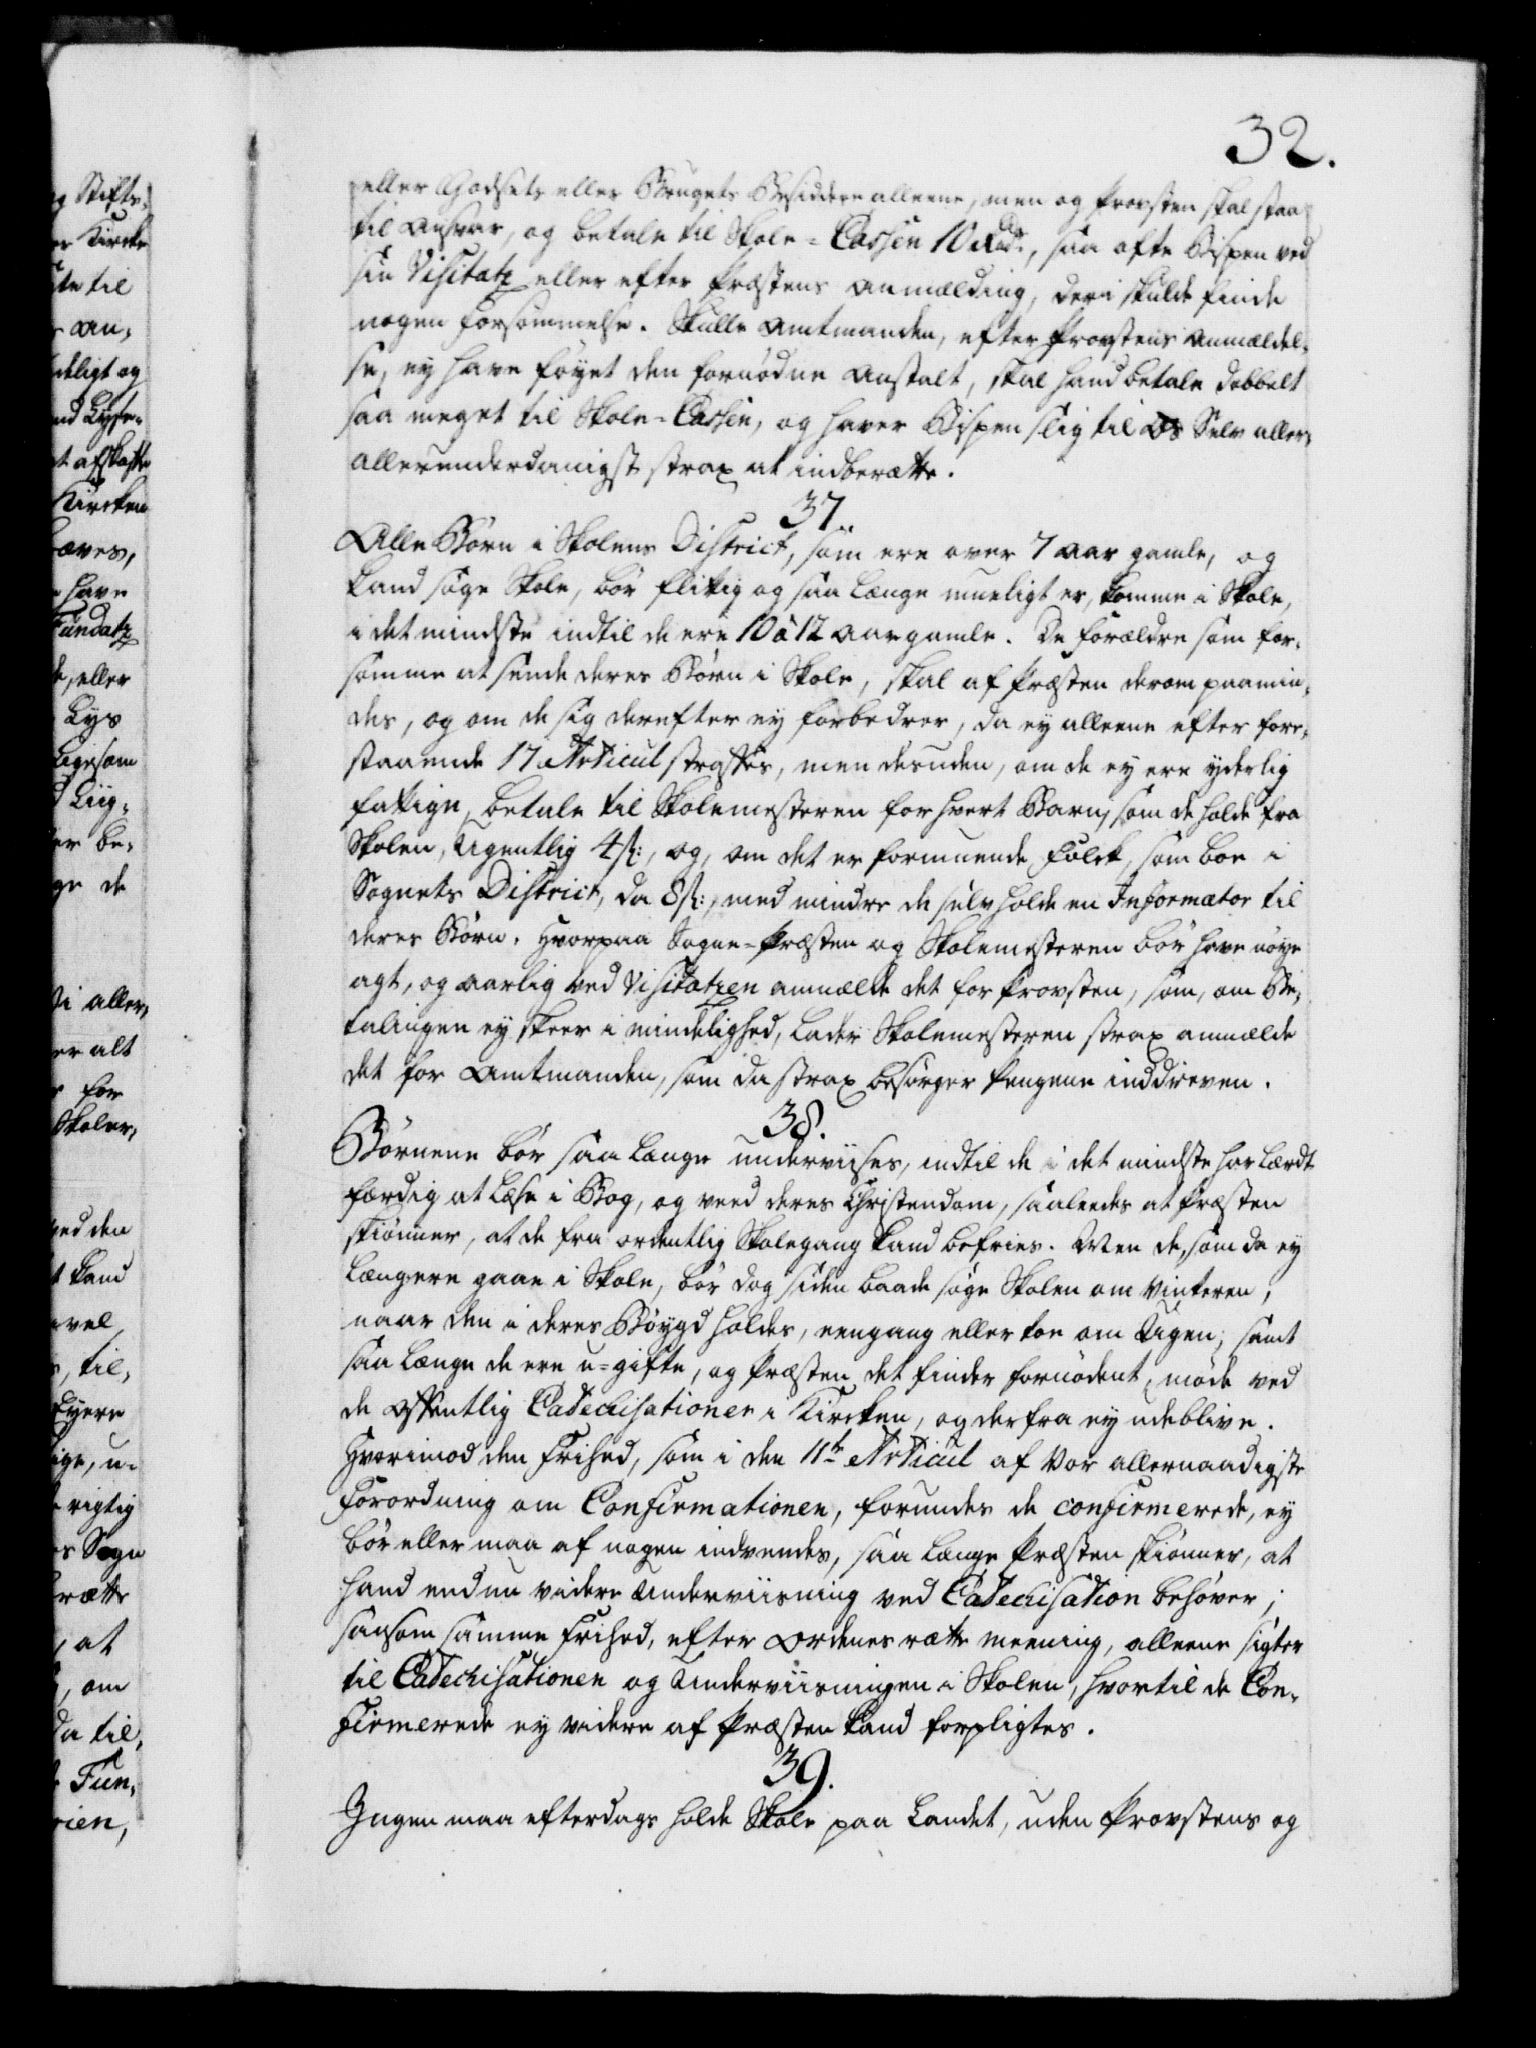 32.
eller Godsets eller Brugets Besiddere alleene, men og Provsten skal staa
til Ansvar, og betale til Skole-Cassen 10 Rdr., saa ofte Bispen ved
sin Visitatz eller efter Præstens Anmælding, deri skulde finde
nogen forsømmelse. Skulle Amtmanden, efter Provstens Anmældel-
se, ey have føyet den fornødne Anstalt, skal hand betale dobbelt
saa meget til Skole-Cassen, og haver Bispen slig til Os Selv aller-
allerunderdanigst strax at indberætte.
37.
Alle Børn i Skolens District, som ere over 7 Aar gamle, og
kand søge Skole, bør flitig og saa længe mueligt er, komme i Skole,
i det mindste indtil de ere 10 à 12 Aar gamle. De forældre som for-
sømme at sende deres Børn i Skole, skal af Præsten derom paamin-
des, og om de sig derefter ey forbedrer, da ey alleene efter fore-
staaende 17 Articul straffes, men desuden, om de ey ere yderlig
fattige, betale til Skolemesteren for hvert Barn, som de holde fra
Skolen, Ugentlig 4 s:, og, om det er formuende folck, som boe i
Sognets District, da 8 s:, med mindre de selv holde en Informator til
deres Børn. Hvorpaa Sogne-Præsten og Skolemesteren bør have nøye
agt, og aarlig ved Visitatzen anmælde det for Provsten, som, om Be-
talingen ey skeer i mindelighed, lader Skolemesteren strax anmælde
det for Amtmanden, som da strax besørger Pengene inddreven.
38.
Børnene bør saa længe underviises, indtil de i det mindste har lærdt
færdig at læse i Bog, og veed deres Christendom, saaleedes at Præsten
skiønner, at de fra ordentlig Skolegang kand befries. Men de, som da ey
længere gaae i Skole, bør dog siden baade søge Skolen om Vinteren,
naar den i deres Bøygd holdes, eengang eller toe om Ugen, samt
saa længe de ere u-gifte, og Præsten det finder fornødent, møde ved
de offentlig Catechisationer i Kircken, og derfra ey udeblive.
Hvorimod den Frihed, som i den 11te Articul af Vor allernaadigste
Forordning om Confirmationen, forundes de confirmerede, ey
bør eller maa af nogen indvendes, saa længe Præsten skiønner, at
hand endnu videre Underviisning ved Catechisation behøver;
saasom samme Frihed, efter Ordenes rætte meening, alleene sigter
til Catechisationen og Underviisningen i Skolen, hvortil de Con-
firmerede ey videre af Præsten kand forpligtes.
39.
Ingen maa efterdags holde Skole paa Landet, uden Provstens og